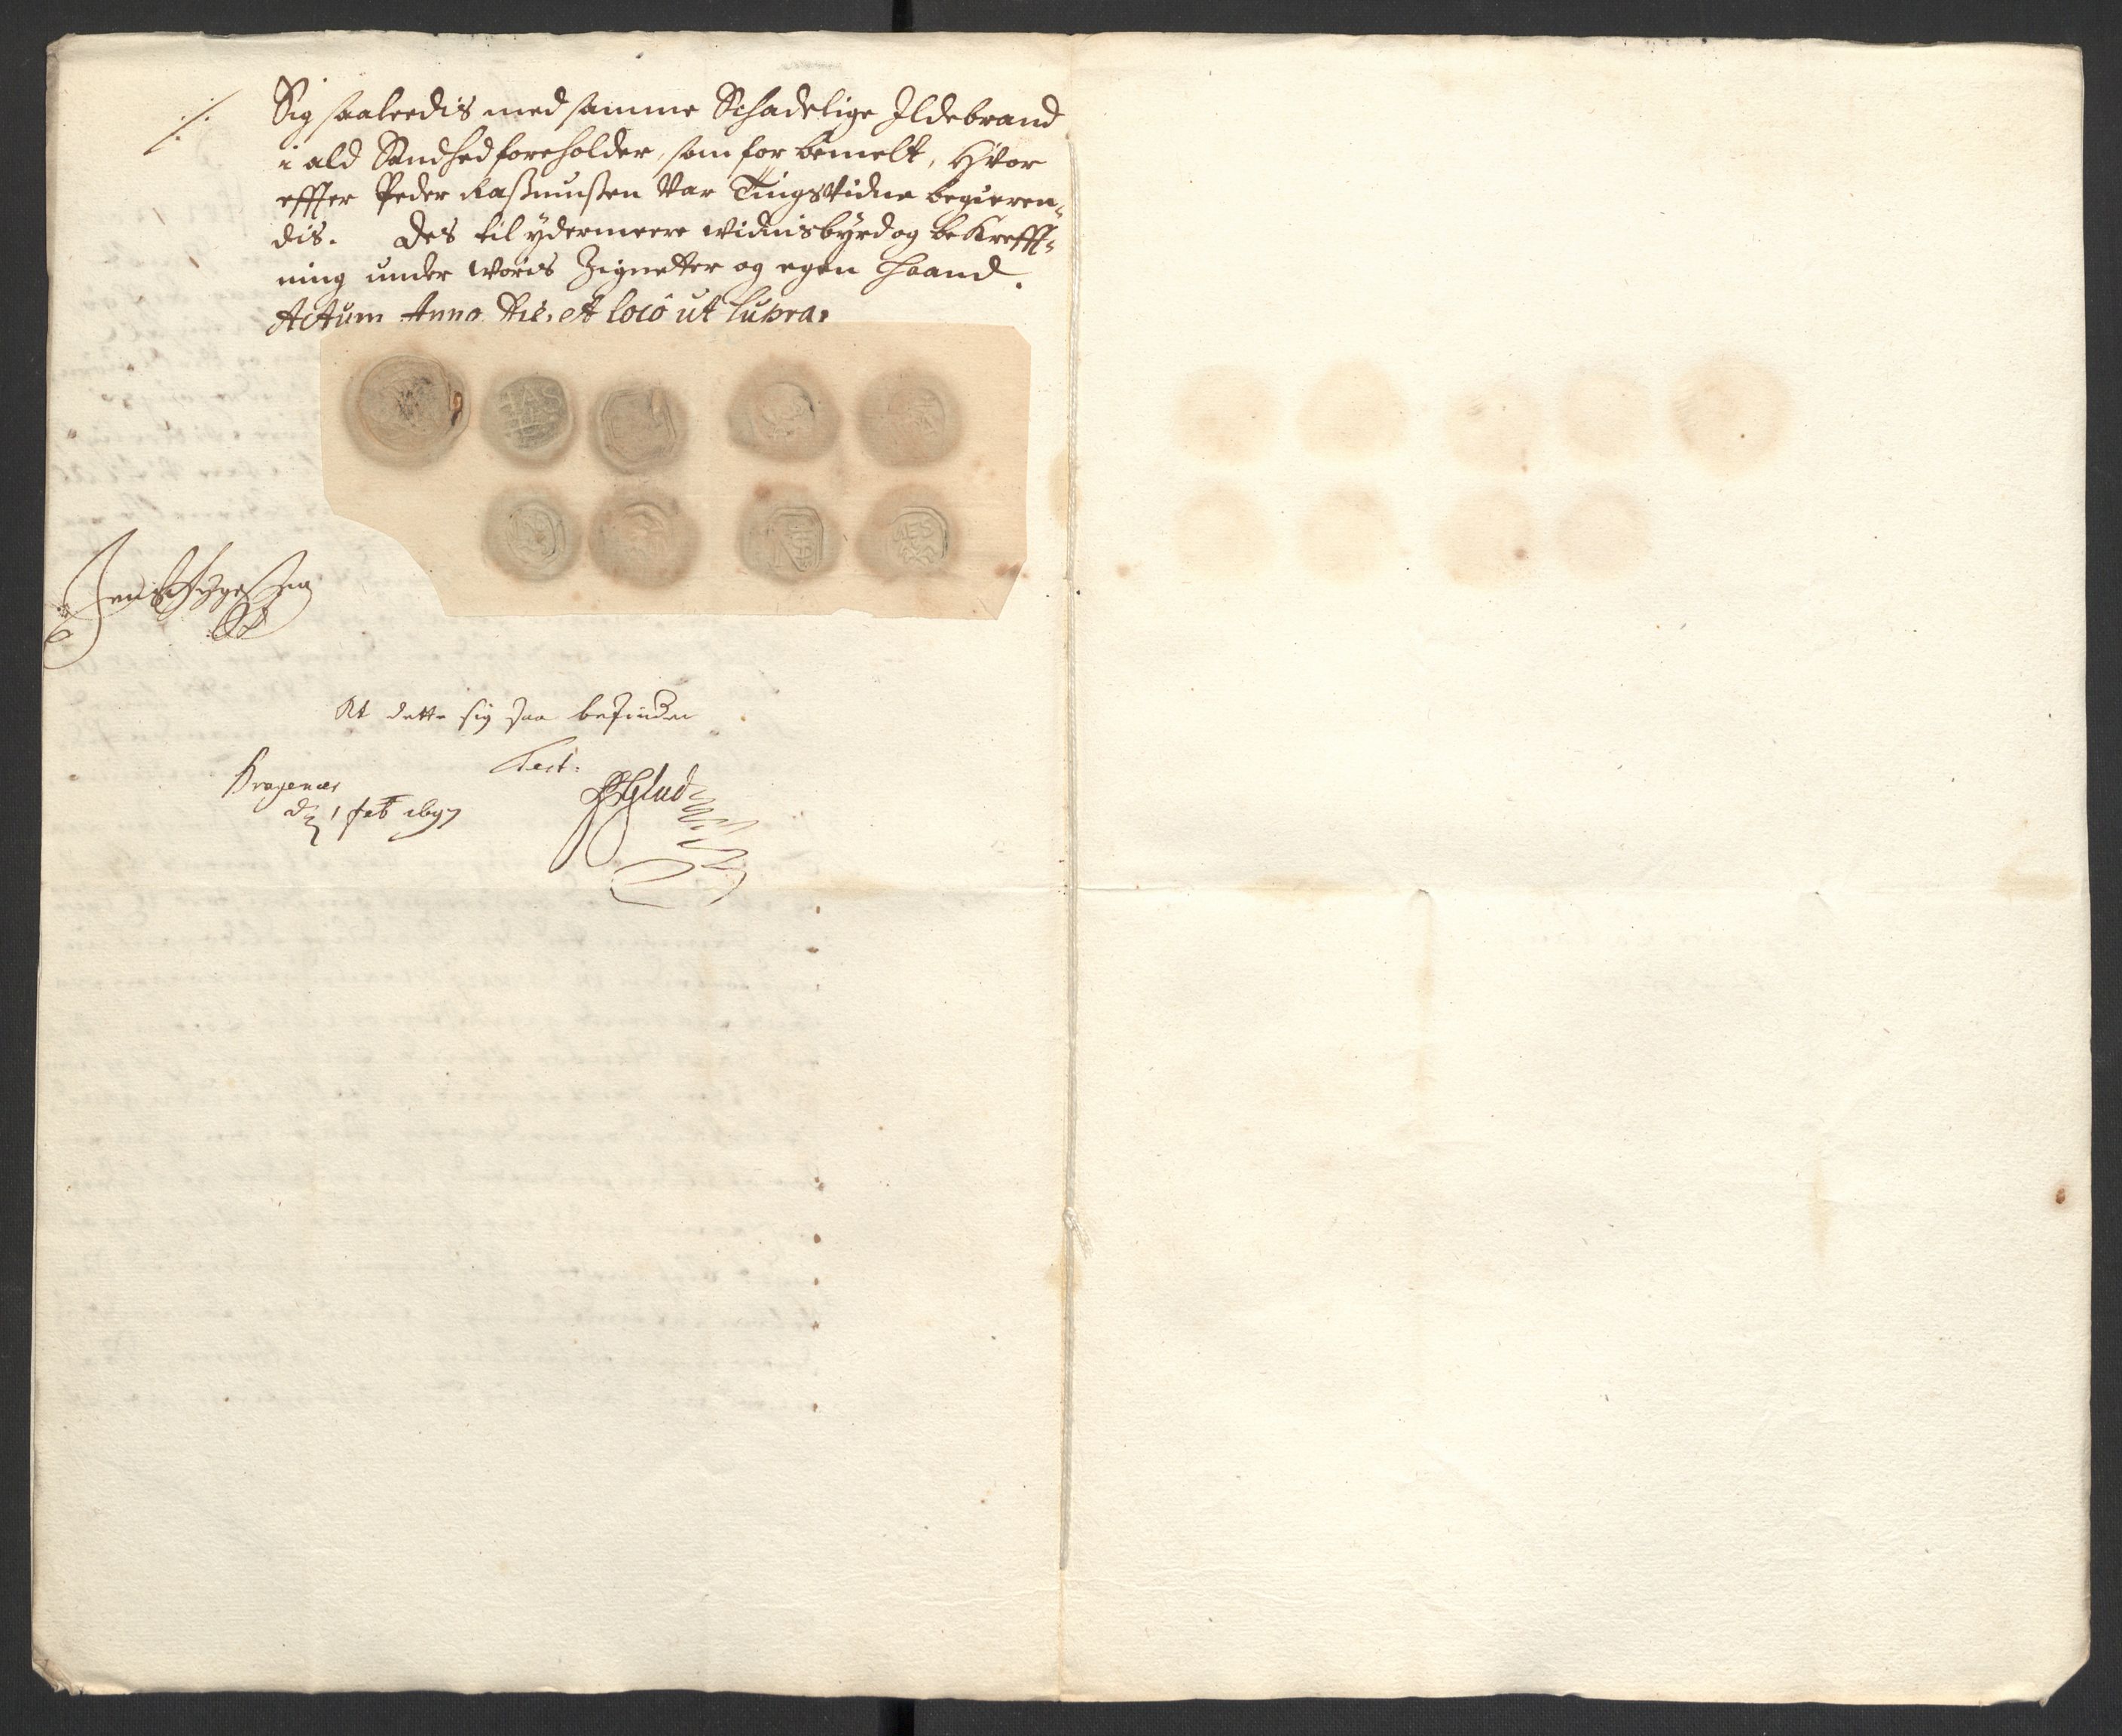 ·/·
Sig saaleedis med samme Schadelige Ildebrand
i ald Sandhed foreholder, som for bemelt, Hvor
effter Peder Rasmussen Var Tingsvidne begieren„
dis. Des til ydermeere widnisbyrd og bekrefft„
ning under Woris Zignetter og egen Haand.
Actum Anno Die, et locô ut supra.
HAS
At dette sig saa befinder
Test:
Bragenæs
d 1 feb 1697
Glud